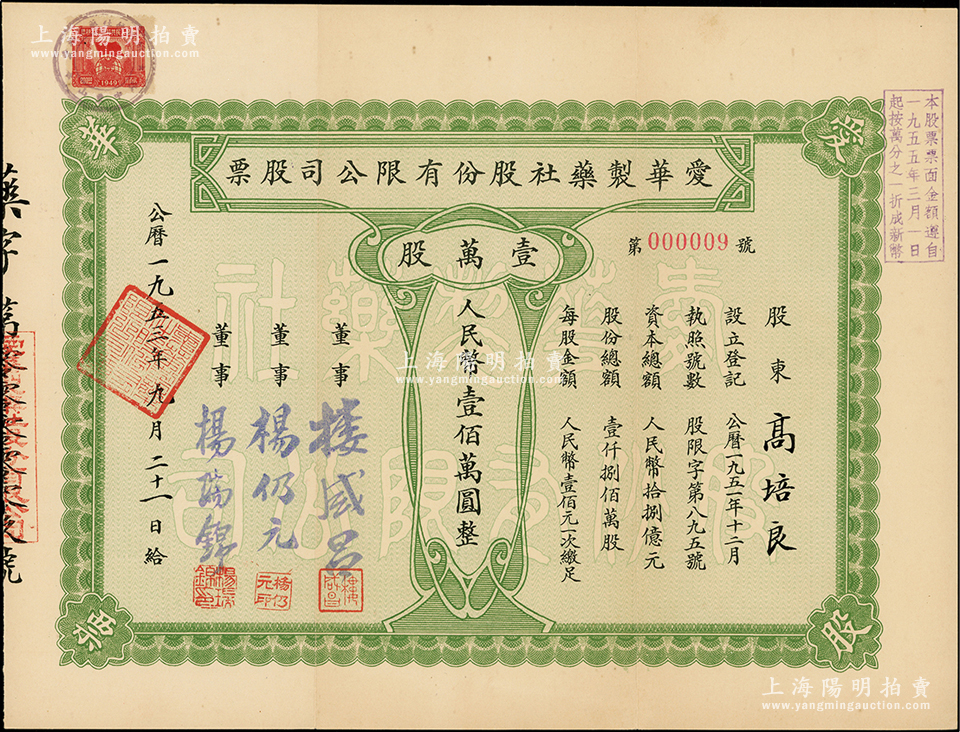 上海陽明拍賣
www.yangmingauction.com
1949
本股票票面金額遵自
一九五五年三月一日
起按萬分之一折成新幣
愛
華
股
票
愛華製藥社股份有限公司股票
壹萬股
第 000009 號
股東 高培良
設立登記 公曆一九五一年十二月
執照號數 股限字第八九五號
資本總額 人民幣拾捌億元
股份總額 壹仟捌佰萬股
每股金額 人民幣壹佰元一次繳足
人民幣壹佰萬圓整
董事 樓咸昌
董事 楊仍元
董事 楊瑞錦
樓咸昌
楊仍元印
楊瑞錦印
公曆一九五三年九月二十一日給
上海陽明拍賣
www.yangmingauction.com
上海陽明拍賣
www.yangmingauction.com